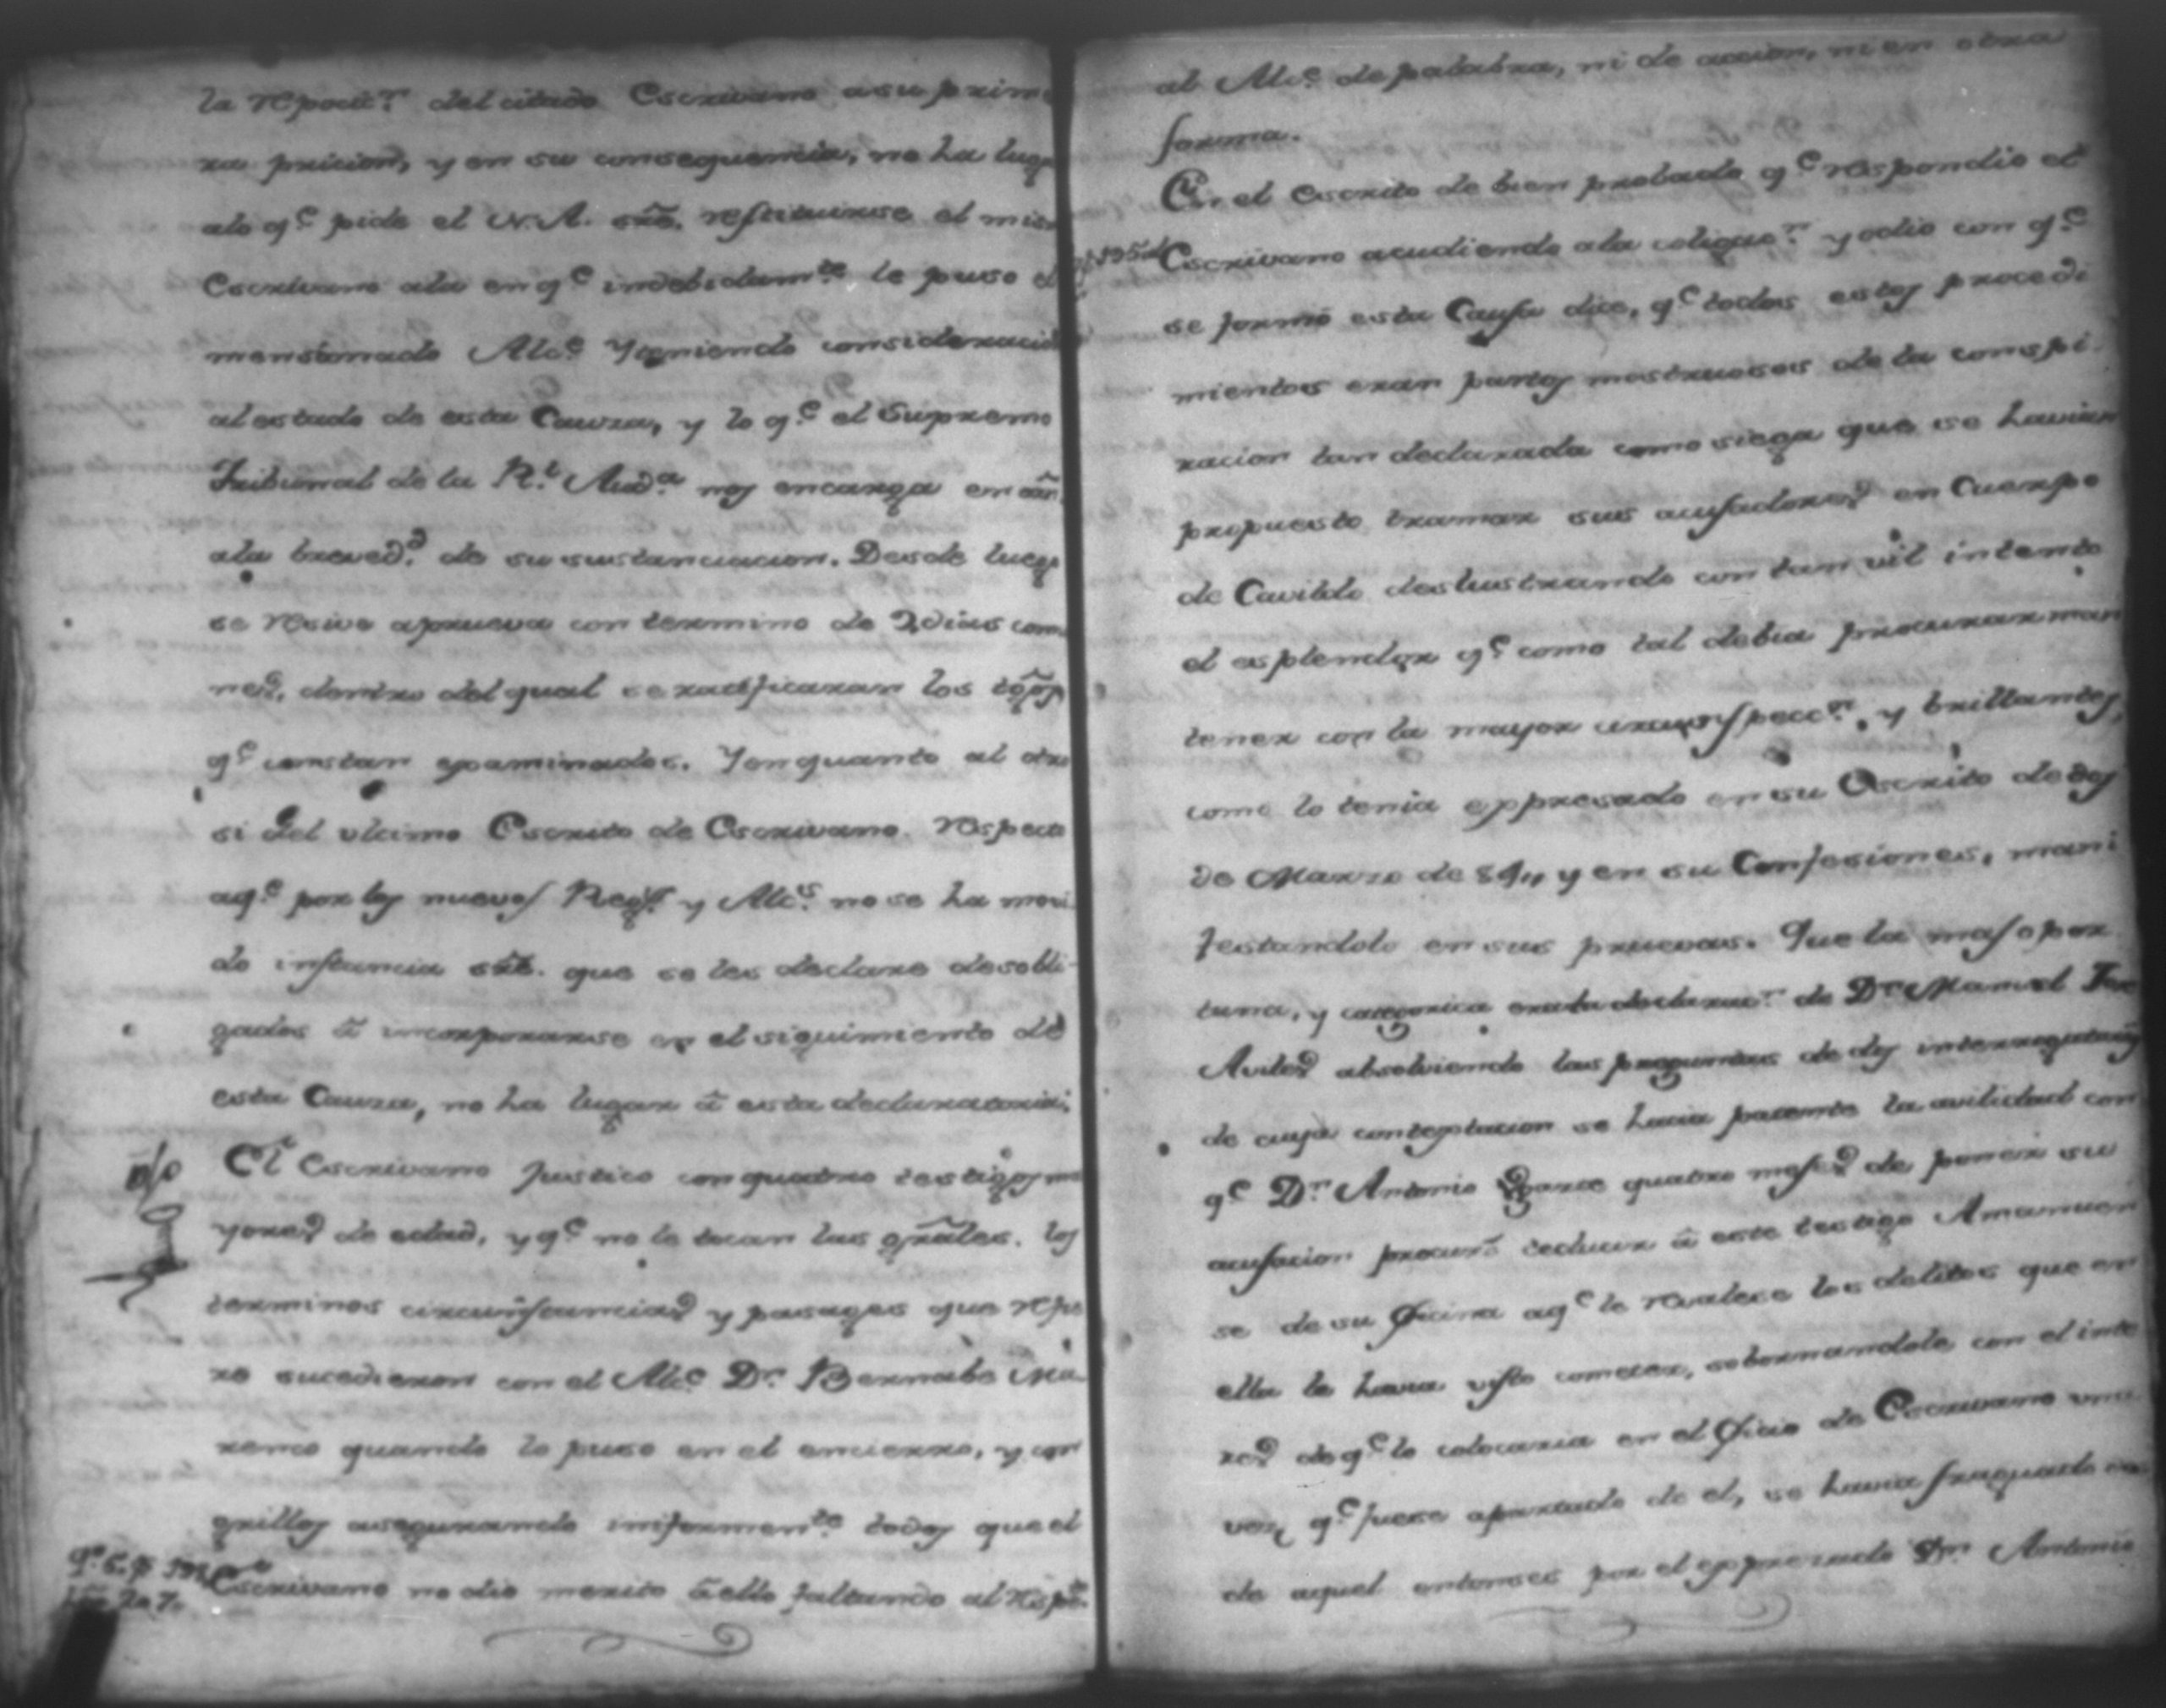 la reposic.n del citado Escrivano a su prime
ra pricion, y en su consequencia, no ha luga
alo q.e pide el N. A. sre. restituirse el mis
Escrivano ala en q.e indebidam.te le puso el
mensionado Alc.e Y teniendo consideracion
al estado de esta Causa, y lo q.e el Supremo
Tribunal de la R.l Aud.a nos encarga en orn.
ala breved.d de su sustanciacion. Desde luego
se resive aprueva con termino de 2 dias com
nes, dentro del qual se ratificaran los tgos
q.e constan examinados. Y en quanto al otro
si del ultimo Escrito de Escrivano. respecto
aq.e por los nuevos Reg.s y Alc.s no se ha movi
do instancia sre. que se les declare desobli
gados â incorporarse en el siguimiento de
esta Causa, no ha lugar â esta declaratoria.
El Escrivano justico con quatro testigos ma
yores de edad, y q.e no le tocan las grales. los
terminos circunstancias y pasages que refie
re sucedieron con el Alc.e D.n Bernabe Mo
reno quando lo puso en el encierro, y con
grillos asegurando informem.te todos que el
Escrivano no dio merito â ello faltando al respto.
al Alc.e de palabra, ni de accion, ni en otra
forma.
En el Escrito de bien probado q.e respondio el
Escrivano acudiendo ala coligac.n y odio con q.e
se formó esta Causa dice, q.e todos estos procedi
mientos eran partos mostruosos de la conspi
racion tan declarada como siega que se havian
propuesto tramar sus acusadores en Cuerpo
de Cavildo deslustrando con tan vil intento
el esplendor q.e como tal debia procurar man
tener con la mayor circunspecc.n, y brillantes,
como lo tenia expresado en su Escrito de dos
de Marzo de 89,, y en su Confesiones, mani
festandolo en sus pruevas. Que la mas opor
tuna, y categorica era la declarac.n de D.n Manuel
Aviles absolviendo las preguntas de dos interrogatorios
de cuya contestacion se hacia patente la avilidad con
q.e D.n Antonio quatro meses de poner su
acusacion procuró seducir â este testigo Amanuen
se de su Oficina aq.e le revalese los delitos que en
ella le havia visto cometer, sobornandole con el inte
res de q.e lo colocaria en el Oficio de Escrivano una
vez q.e fuese apartado de el, se havia fraguado
de aquel entonses por el expresado D.n Antonio